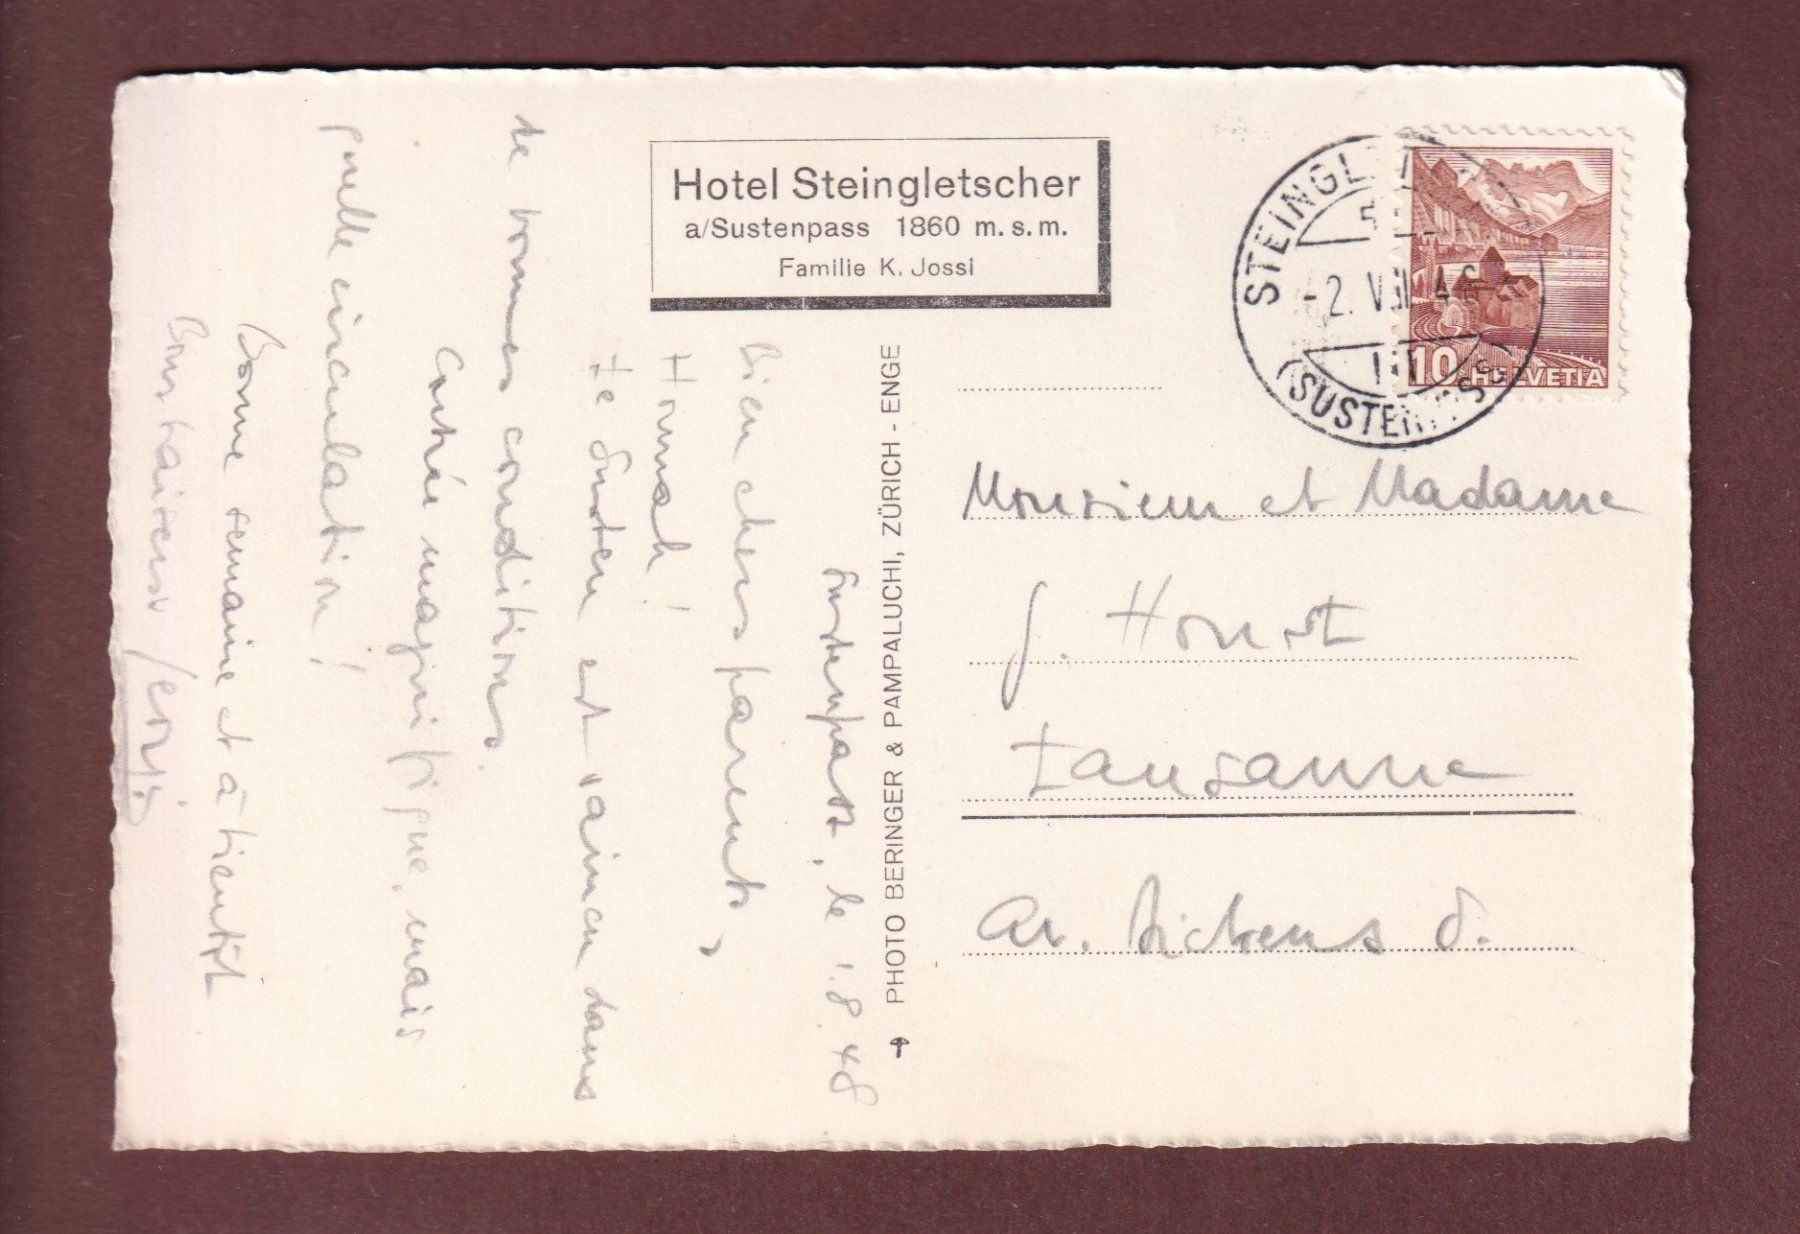 Hotel Steingletscher
a/Sustenpass 1860 m. s. m.
Familie K. Jossi
STEINGL
-2. VIII 48
(SUSTENPASS)
10 HELVETIA
Sustenpass, le 1.8.48
Bien chers parents,
Hourrah!
le Susten est vaincu dans
de bonnes conditions.
Contrée magnifique, mais
quelle circulation!
Bonne semaine et à bientôt
Bons baisers
PHOTO BERINGER & PAMPALUCHI, ZÜRICH - ENGE
Monsieur et Madame
J.
Lausanne
Av. Dickens 8.